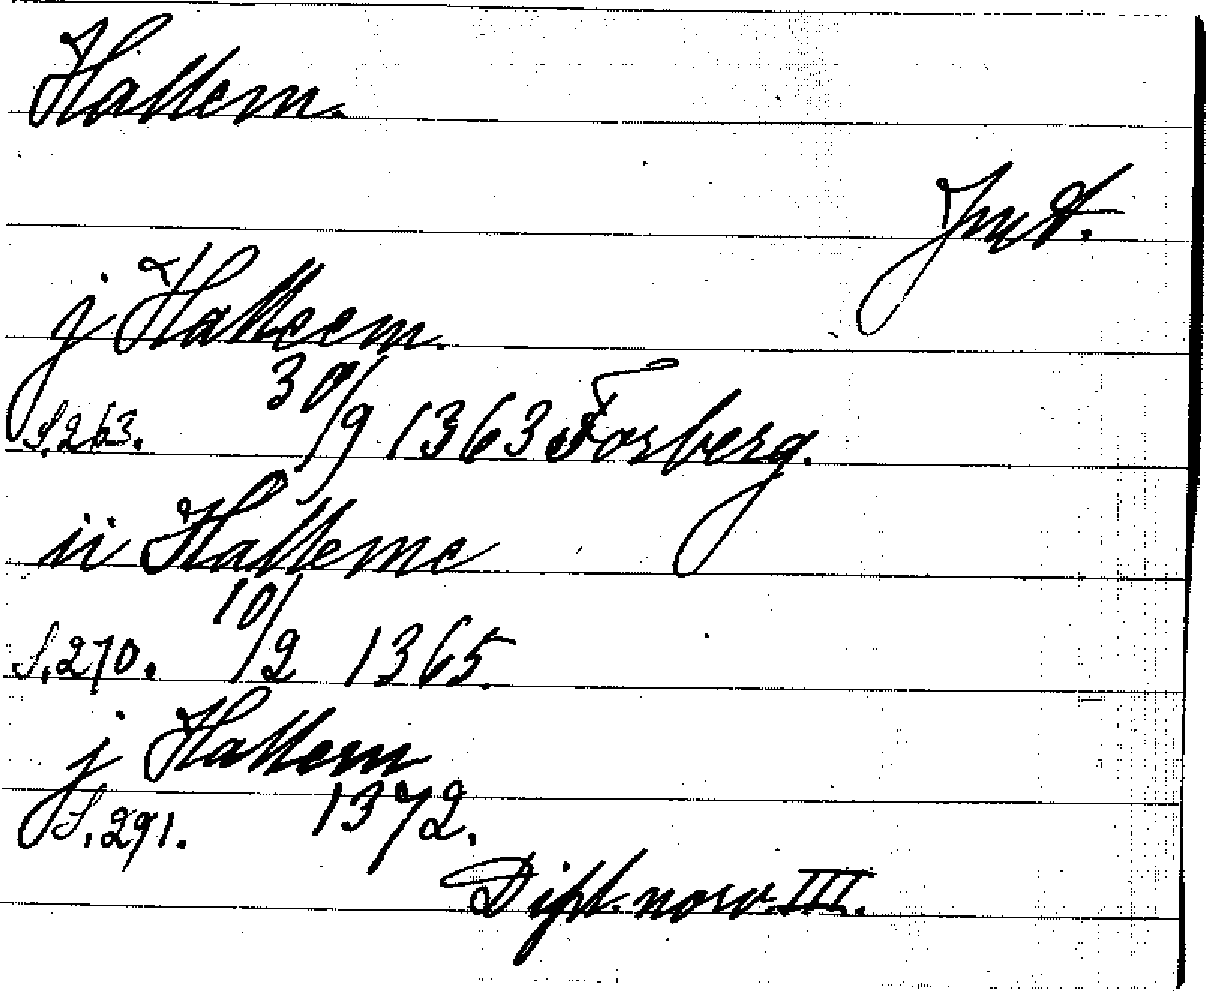 Hallem.
j Halleem.
S.263. 30/9 1363 Forberg.
ii Halleme
S.270. 10/2 1365.
j Hallem
S.291. 1372.
Dipl. norv. III.